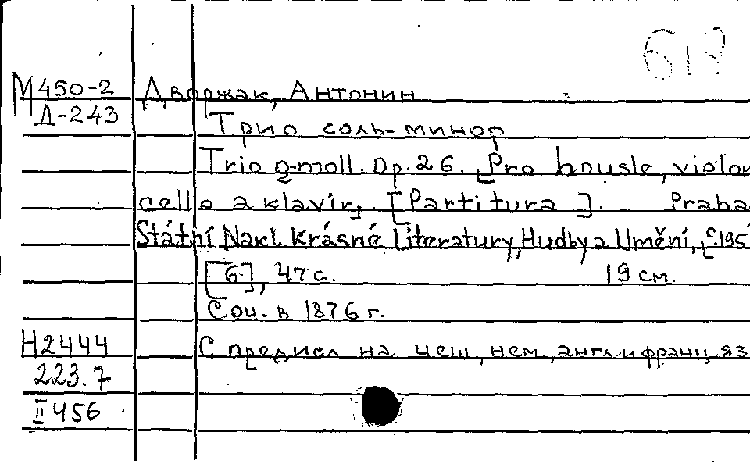 М450-2 Дворжак, Антонин
Д-243
Трио соль-минор
Trio g-moll. Op. 26. [Pro housle, violon
cello a klavír]. [Partitura]. Praha
Státní Nakl. Krásné Literatury, Hudby a Umění, [c.195
[6], 47 с. 19 см.
Соч. в 1876 г.
Н2444 С предисл на чеш, нем, англ и франц яз
223.7
II 456